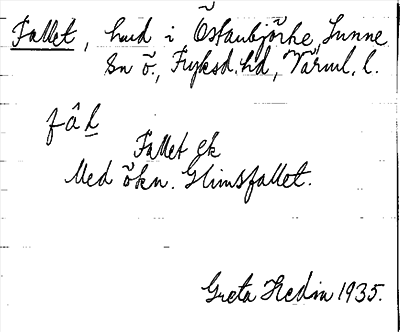 Fallet, hmd i Östanbjörke, Sunne
sn ö., Fryksd. hd, Värml. l.
fâḷ
Fallet Gk
Med ökn. Glimsfallet.
Greta Hedin 1935.